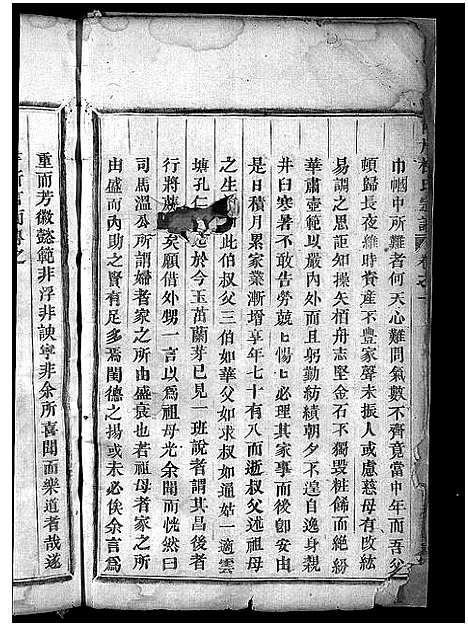 巾幗中所難者何天心難問氣數不齊竟當中年而吾父
頓歸長夜維時資產不豐家聲未振人或慮慈母有改絃
易調之思詎知操矢栢舟志堅金石不獨毀粧飾而絶紛
華肅壼範以嚴內外而且躬勤紡績朝夕不遑自逸身親
井臼寒暑不敢告勞兢ヒ惕ヒ必理其家事而後卽安由
是日積月累家業漸增享年七十有八而逝叔父述祖母
之生 此伯叔父三伯如華父如求叔如通姑一適雲
塘孔仁 於今玉茁蘭芽已見一班說者謂其昌後者
行將蔟 矣願借外甥一言以爲祖母光余聞而恍然曰
司馬溫公所謂婦者家之所由盛衰也若祖母者家之所
由盛而內助之賢有足多焉閨德之揚或未必俟余言爲
重而芳徽懿範非浮非諛寧非余所喜聞而樂道者哉遂